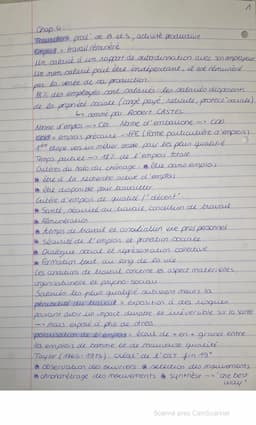 1
Chap 4
Travail = prod. de B et S, activité productive
Emploi = travail rémunéré
Un salarié a un rapport de subordination avec son employeur
Un non salarié peut être indépendant, il est rémunéré
par la vente de sa production
88% des employés sont salariés : les salariés disposent
de la propriété sociale (congé payé, retraite, protect° sociale)
↳ nommé par Robert CASTEL
Norme d'emploi → CDI Norme d'embauche → CDD
CDD = emplois précaires → FPE (forme particulière d'emplois)
1ère étape vers un métier stable pour les plus qualifiés
Temps partiel → 18% de l'emploi totale
Critères du halo du chômage : * être sans emplois
* être à la recherche active d'emploi
* être disponible pour travailler
Critère d'emplois de qualité / "décent"
* Santé, sécurité au travail, condition de travail
* Rémunération
* temps de travail et conciliation vie pro/personnel
* Sécurité de l'emplois et protection sociale
* Dialogue social et représentation collective
* Formation tout au long de la vie
Les conditions de travail concerne les aspect matérielles,
organisationnels et psycho sociaux
Salariés les plus qualifié subissent moins la
pénibilité du travail = exposition à des risques
pouvant avoir un impact durable et irréversible sur la santé
→ mais exposé à plus de stress
polarisation de l'emplois : écart de + en + grand entre
les emplois de bonne et de mauvaise qualité
Taylor (1865-1915) créat° de l'OST fin 19e
* observation des ouvriers * sélection des mouvements
* chronométrage des mouvements * synthèse → "one best
way"
Scanné avec CamScanner